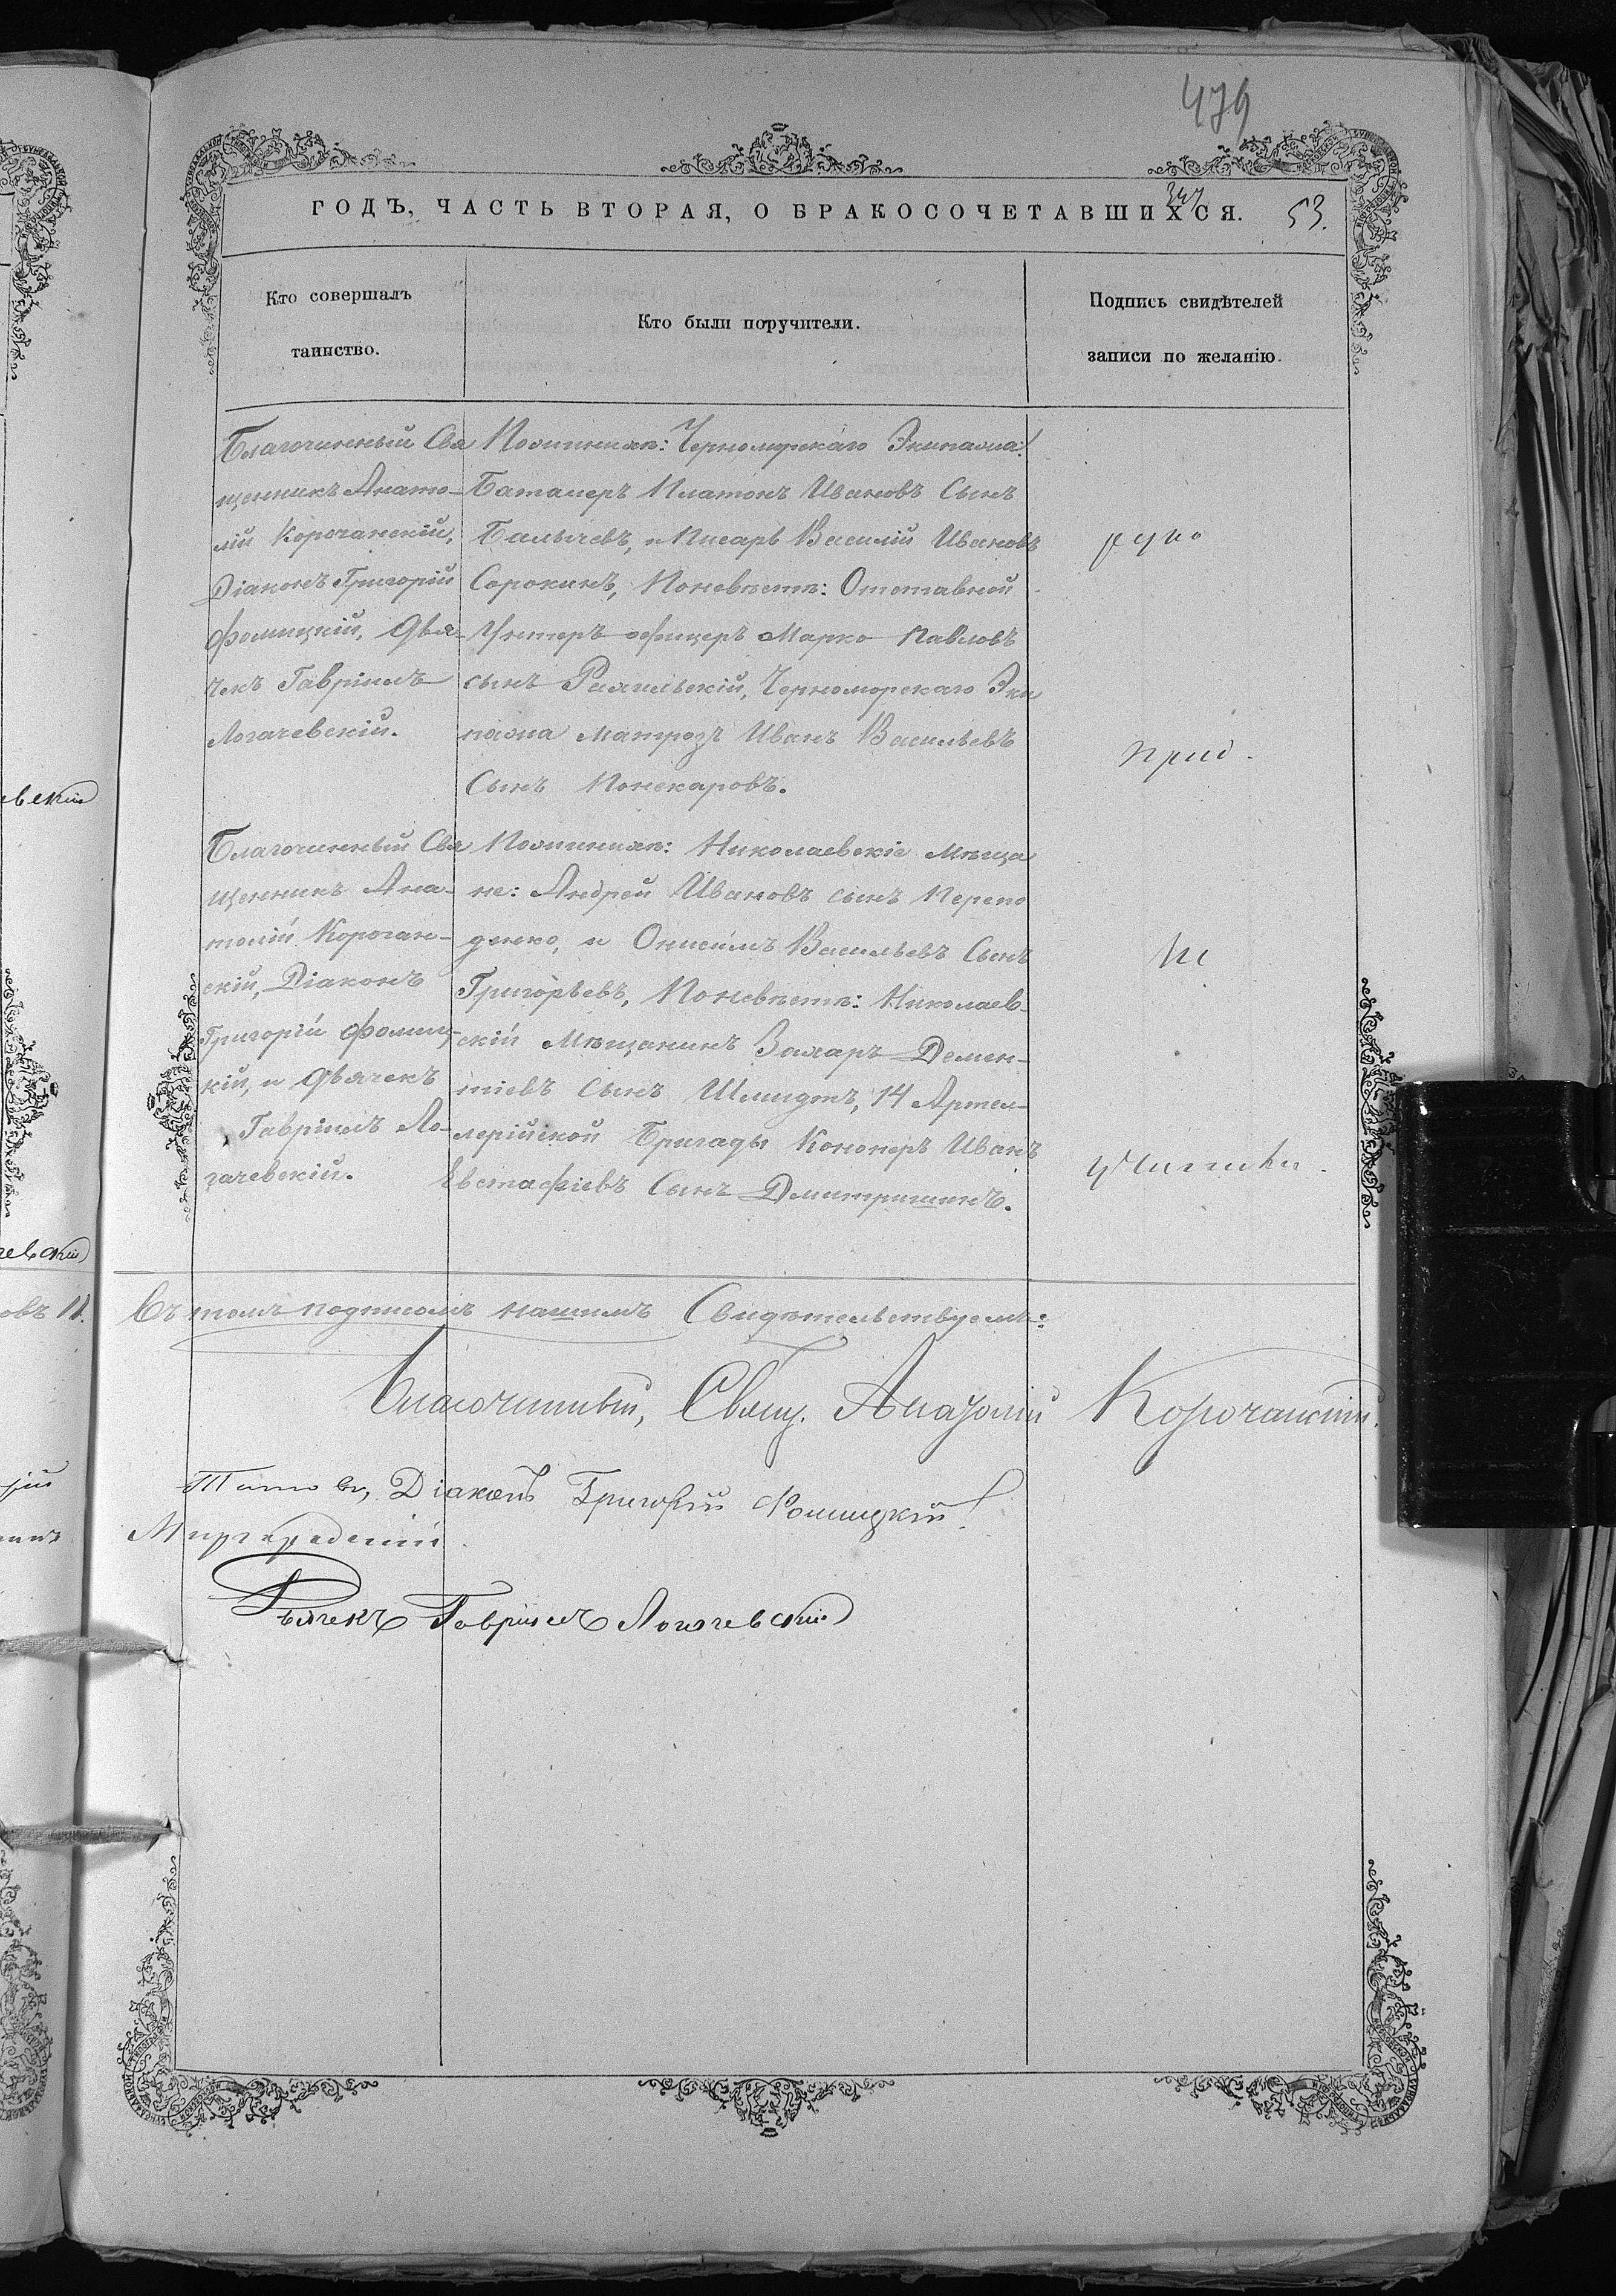 479
347
ГОДЪ, ЧАСТЬ ВТОРАЯ, О БРАКОСОЧЕТАВШИХСЯ. 53.
Кто совершалъ
таинство.
Кто были поручители.
Подпись свидѣтелей
записи по желанію.
Благочинный Свя
щенникъ Анато-
лій Корочанскій,
Діаконъ Григорій
Фомицкій, Дья-
чекъ Гавріилъ
Логачевскій.
По женихѣ: Черноморскаго Экипажа:
Баталеръ Платонъ Ивановъ Сынъ
Балычевъ, и Писарь Василій Ивановъ
Сорокинъ, По невѣстѣ: Отставной
Унтеръ офицеръ Марко Павловъ
сынъ Черноморскаго Эки
пажа матрозъ Иванъ Васильевъ
Сынъ Понекаровъ.
руко
прид.
Благочинный Свя
щенникъ Ана-
толій Корочан-
скій, Діаконъ
Григорій Фомиц-
кій, и Дьячекъ
Гавріилъ Ло-
гачевскій.
По женихѣ: Николаевскіе мѣща
не: Андрей Ивановъ сынъ
и Онисимъ Васильевъ Сынъ
Григорьевъ, По невѣстѣ: Николаев-
скій Мѣщанинъ Захаръ Демен-
тіевъ Сынъ Шмидтъ, 14 Артил-
лерійской Бригады Кононеръ Иванъ
Евстафіевъ Сынъ Дмитришинъ.
не
учинили.
Въ томъ подписомъ нашимъ Свидѣтельствуемъ:
Благочинный, Свящ. Анатолій Корочанскій.
Діаконъ Григорій Фомицкій.
Дьячекъ Гавріилъ Логачевскій